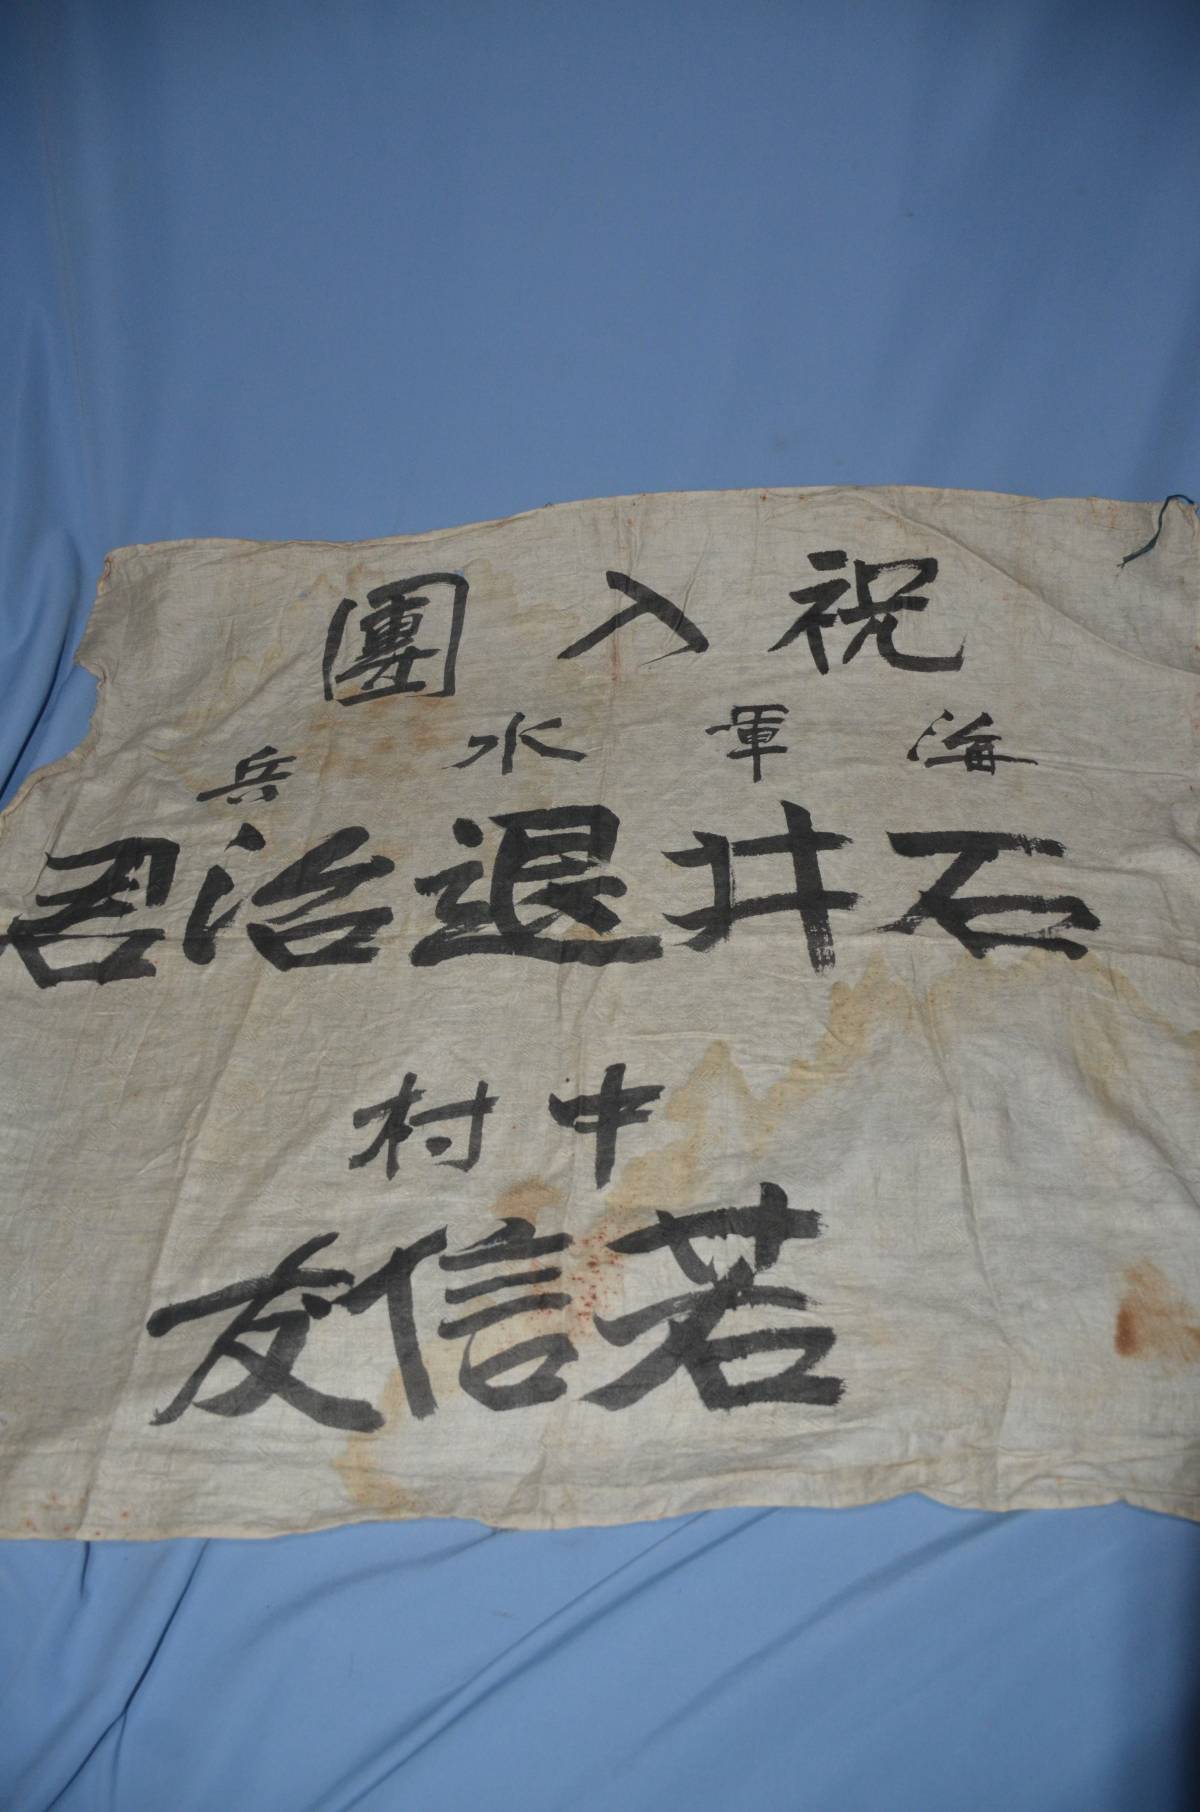 祝入團
海軍水兵
石井退治君
中村
若信友